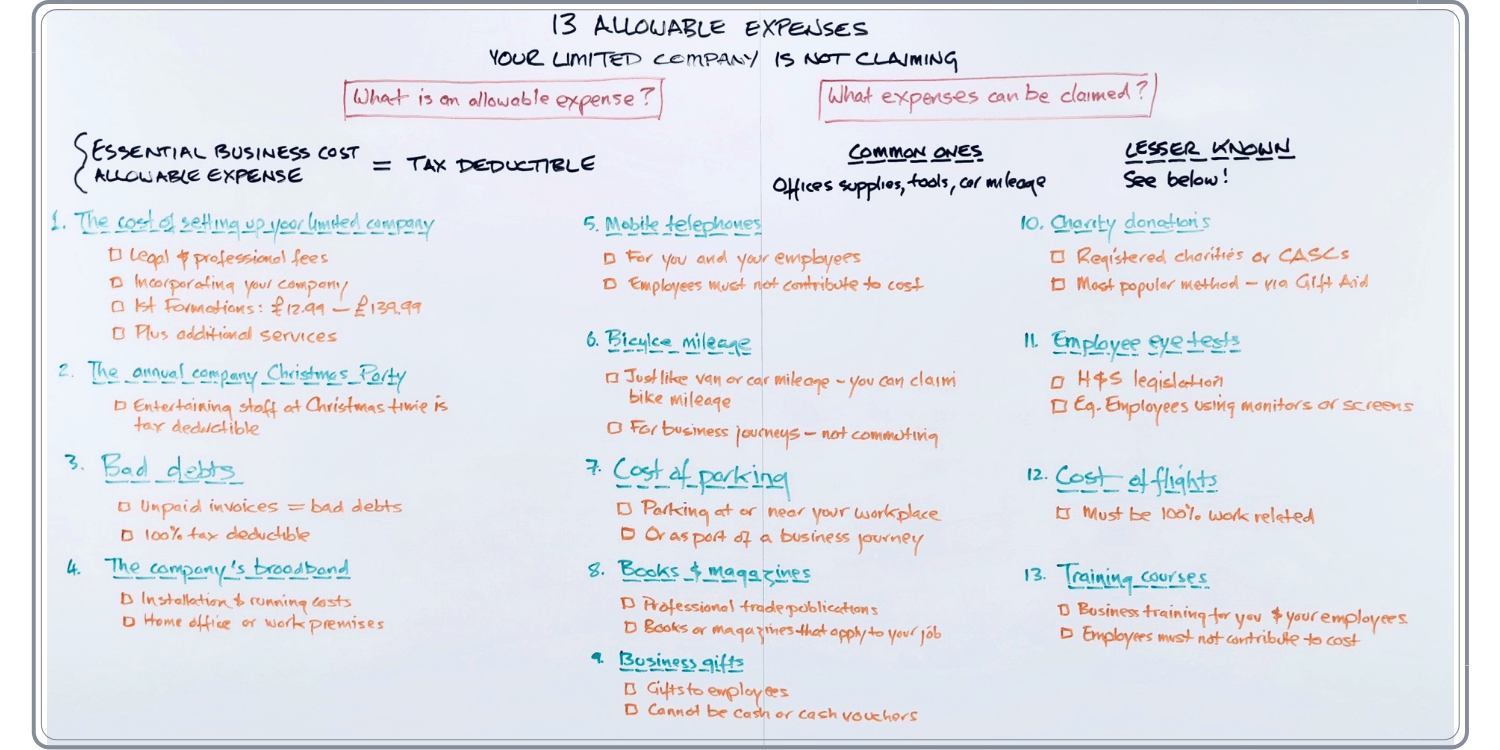 13 ALLOWABLE EXPENSES
YOUR LIMITED COMPANY IS NOT CLAIMING
What is an allowable expense?
What expenses can be claimed?
ESSENTIAL BUSINESS COST
ALLOWABLE EXPENSE
= TAX DEDUCTIBLE
COMMON ONES
Offices supplies, tools, car mileage
LESSER KNOWN
See below!
1. The cost of setting up your limited company
Legal & professional fees
Incorporating your company
1st Formations: £12.99 – £139.99
Plus additional services
2. The annual company Christmas Party
Entertaining staff at Christmas time is
tax deductible
3. Bad debts
Unpaid invoices = bad debts
100% tax deductible
4. The company's broadband
Installation & running costs
Home office or work premises
5. Mobile telephones
For you and your employees
Employees must not contribute to cost
6. Bicylce mileage
Just like van or car mileage – you can claim
bike mileage
For business journeys – not commuting
7. Cost of parking
Parking at or near your workplace
Or as part of a business journey
8. Books & magazines
Professional trade publications
Books or magazines that apply to your job
9. Business gifts
Gifts to employees
Cannot be cash or cash vouchers
10. Charity donations
Registered charities or CASCs
Most popular method – via Gift Aid
11. Employee eye tests
H&S legislation
Eg. Employees using monitors or screens
12. Cost of flights
Must be 100% work related
13. Training courses
Business training for you & your employees
Employees must not contribute to cost